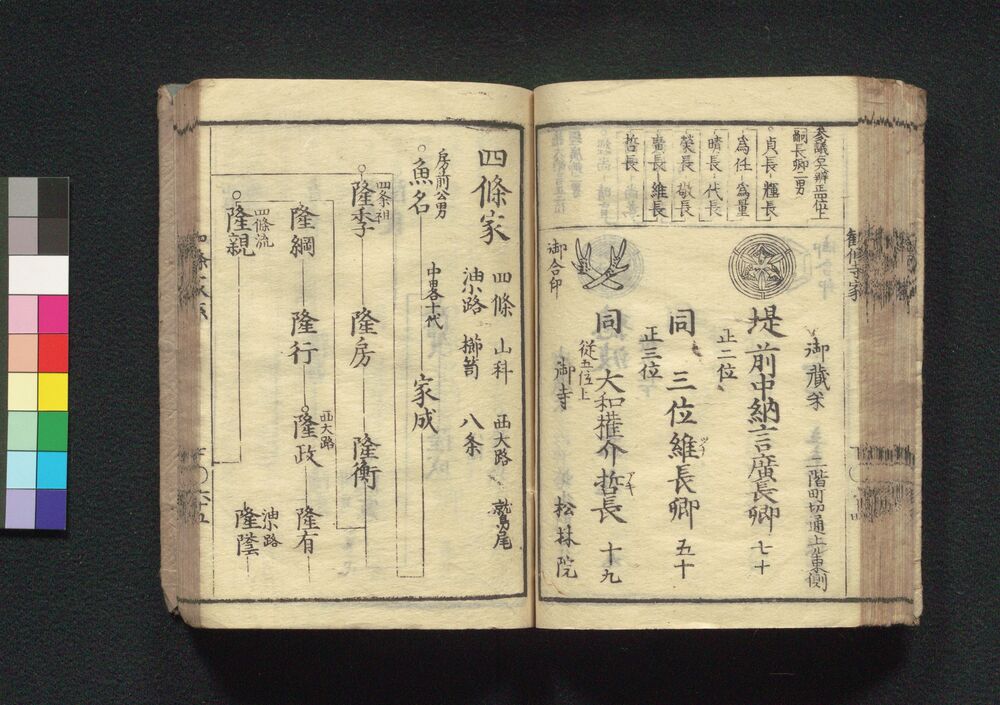 勧修寺家
参議左大辨正四位上
嗣長卿二男
貞長 輝長
為任 為量
晴長 代長
榮長 敬長
維長
哲長
御藏米
二階町切通上ル東側
堤前中納言廣長卿 七十
正二位
同 三位維長卿 五十
正三位
同 大和權介哲長 十九
従五位上
御合印
御寺 松林院
四條家
四條 山科 西大路 鷲尾
油小路 櫛笥 八条
房前公男
魚名
中畧十代
家成
四条祖
隆季 隆房 隆衡
隆綱 隆行
西大路
隆政 隆有
四條流
隆親
油小路
隆蔭